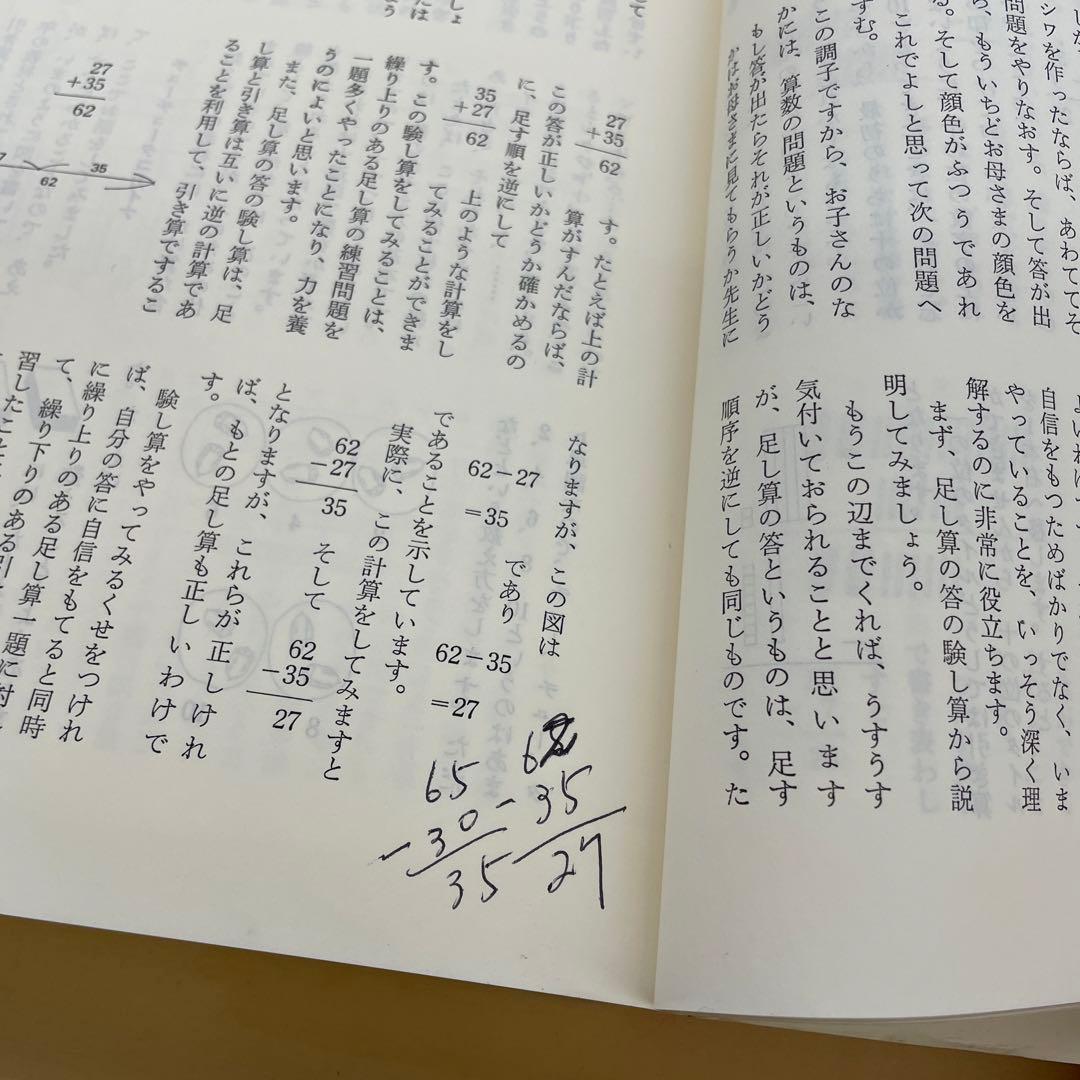 シワを作ったならば、あわててそ
問題をやりなおす。そして答が出
ら、もういちどお母さまの顔色を
る。そして顔色がふつうであれ
これでよしと思って次の問題へ
すむ。
この調子ですから、お子さんのな
かには、算数の問題というものは、
もし答が出たらそれが正しいかどう
かはお母さまに見てもらうか先生に
自信をもつためばかりでなく、いま
やっていることを、いっそう深く理
解するのに非常に役立ちます。
まず、足し算の答の験し算から説
明してみましょう。
もうこの辺までくれば、うすうす
気付いておられることと思います
が、足し算の答というものは、足す
順序を逆にしても同じものです。た
27
+35
62
す。たとえば上の計
算がすんだならば、
この答が正しいかどうか確かめるの
に、足す順を逆にして
35
+27
62
上のような計算をし
てみることができま
す。この験し算をしてみることは、
繰り上りのある足し算の練習問題を
一題多くやったことになり、力を養
うのによいと思います。
また、足し算の答の験し算は、足
し算と引き算は互いに逆の計算であ
ることを利用して、引き算でするこ
27
+35
62
35
62
なりますが、この図は
62−27
=35
であり
62−35
=27
であることを示しています。
実際に、この計算をしてみますと
62
−27
35
そして
62
−35
27
となりますが、これらが正しけれ
ば、もとの足し算も正しいわけで
す。
験し算をやってみるくせをつけれ
ば、自分の答に自信をもてると同時
に繰り上りのある足し算一題に対し
て、繰り下りのある引
習したこと
35
27
65
-30
35